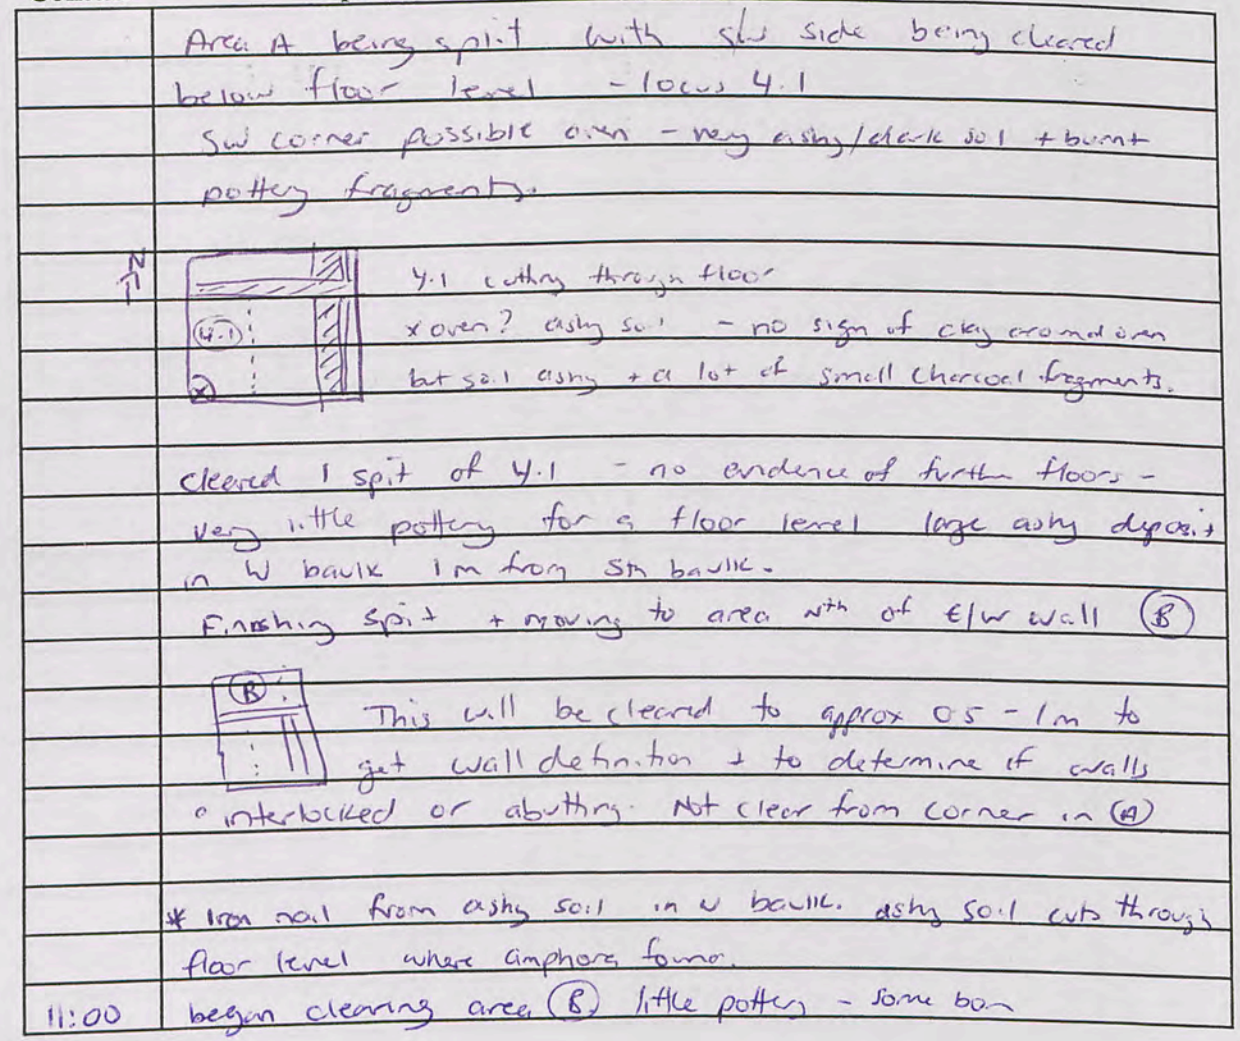 Area A being split with SW side being cleared
below floor level - locus 4.1
SW corner possible oven - very ashy/dark soil + burnt
pottery fragments.
N
4.1 cutting through floor
(4.1)
x oven? ashy soil - no sign of clay around oven
X
but soil ashy + a lot of small charcoal fragments.
cleared 1 spit of 4.1 - no evidence of further floors -
very little pottery for a floor level large ashy deposit
in W baulk 1m from Sth baulk.
Finishing spit + moving to area Nth of E/W wall (B)
(B)
This will be cleared to approx 0.5 - 1m to
get wall definition + to determine if walls
interlocked or abutting. Not clear from corner in (A)
* Iron nail from ashy soil in W baulk. ashy soil cuts through
floor level where amphora found.
11:00 began clearing area (B) little pottery - some bon